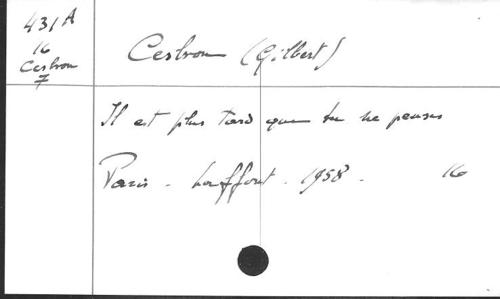 431 A
16
Cesbron
7
Cesbron (Gilbert)
Il est plus tard que tu ne penses
Paris - Laffont - 1958 - 16